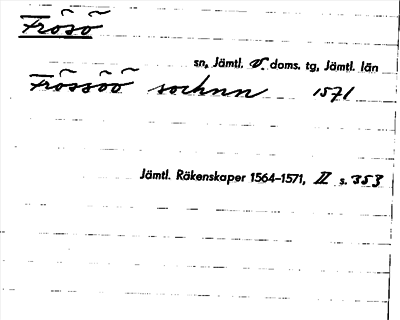 Frösö
sn, Jämtl. v. doms. tg, Jämtl. län
Frössöö sochnn 1571
Jämtl. Räkenskaper 1564–1571, II s. 353